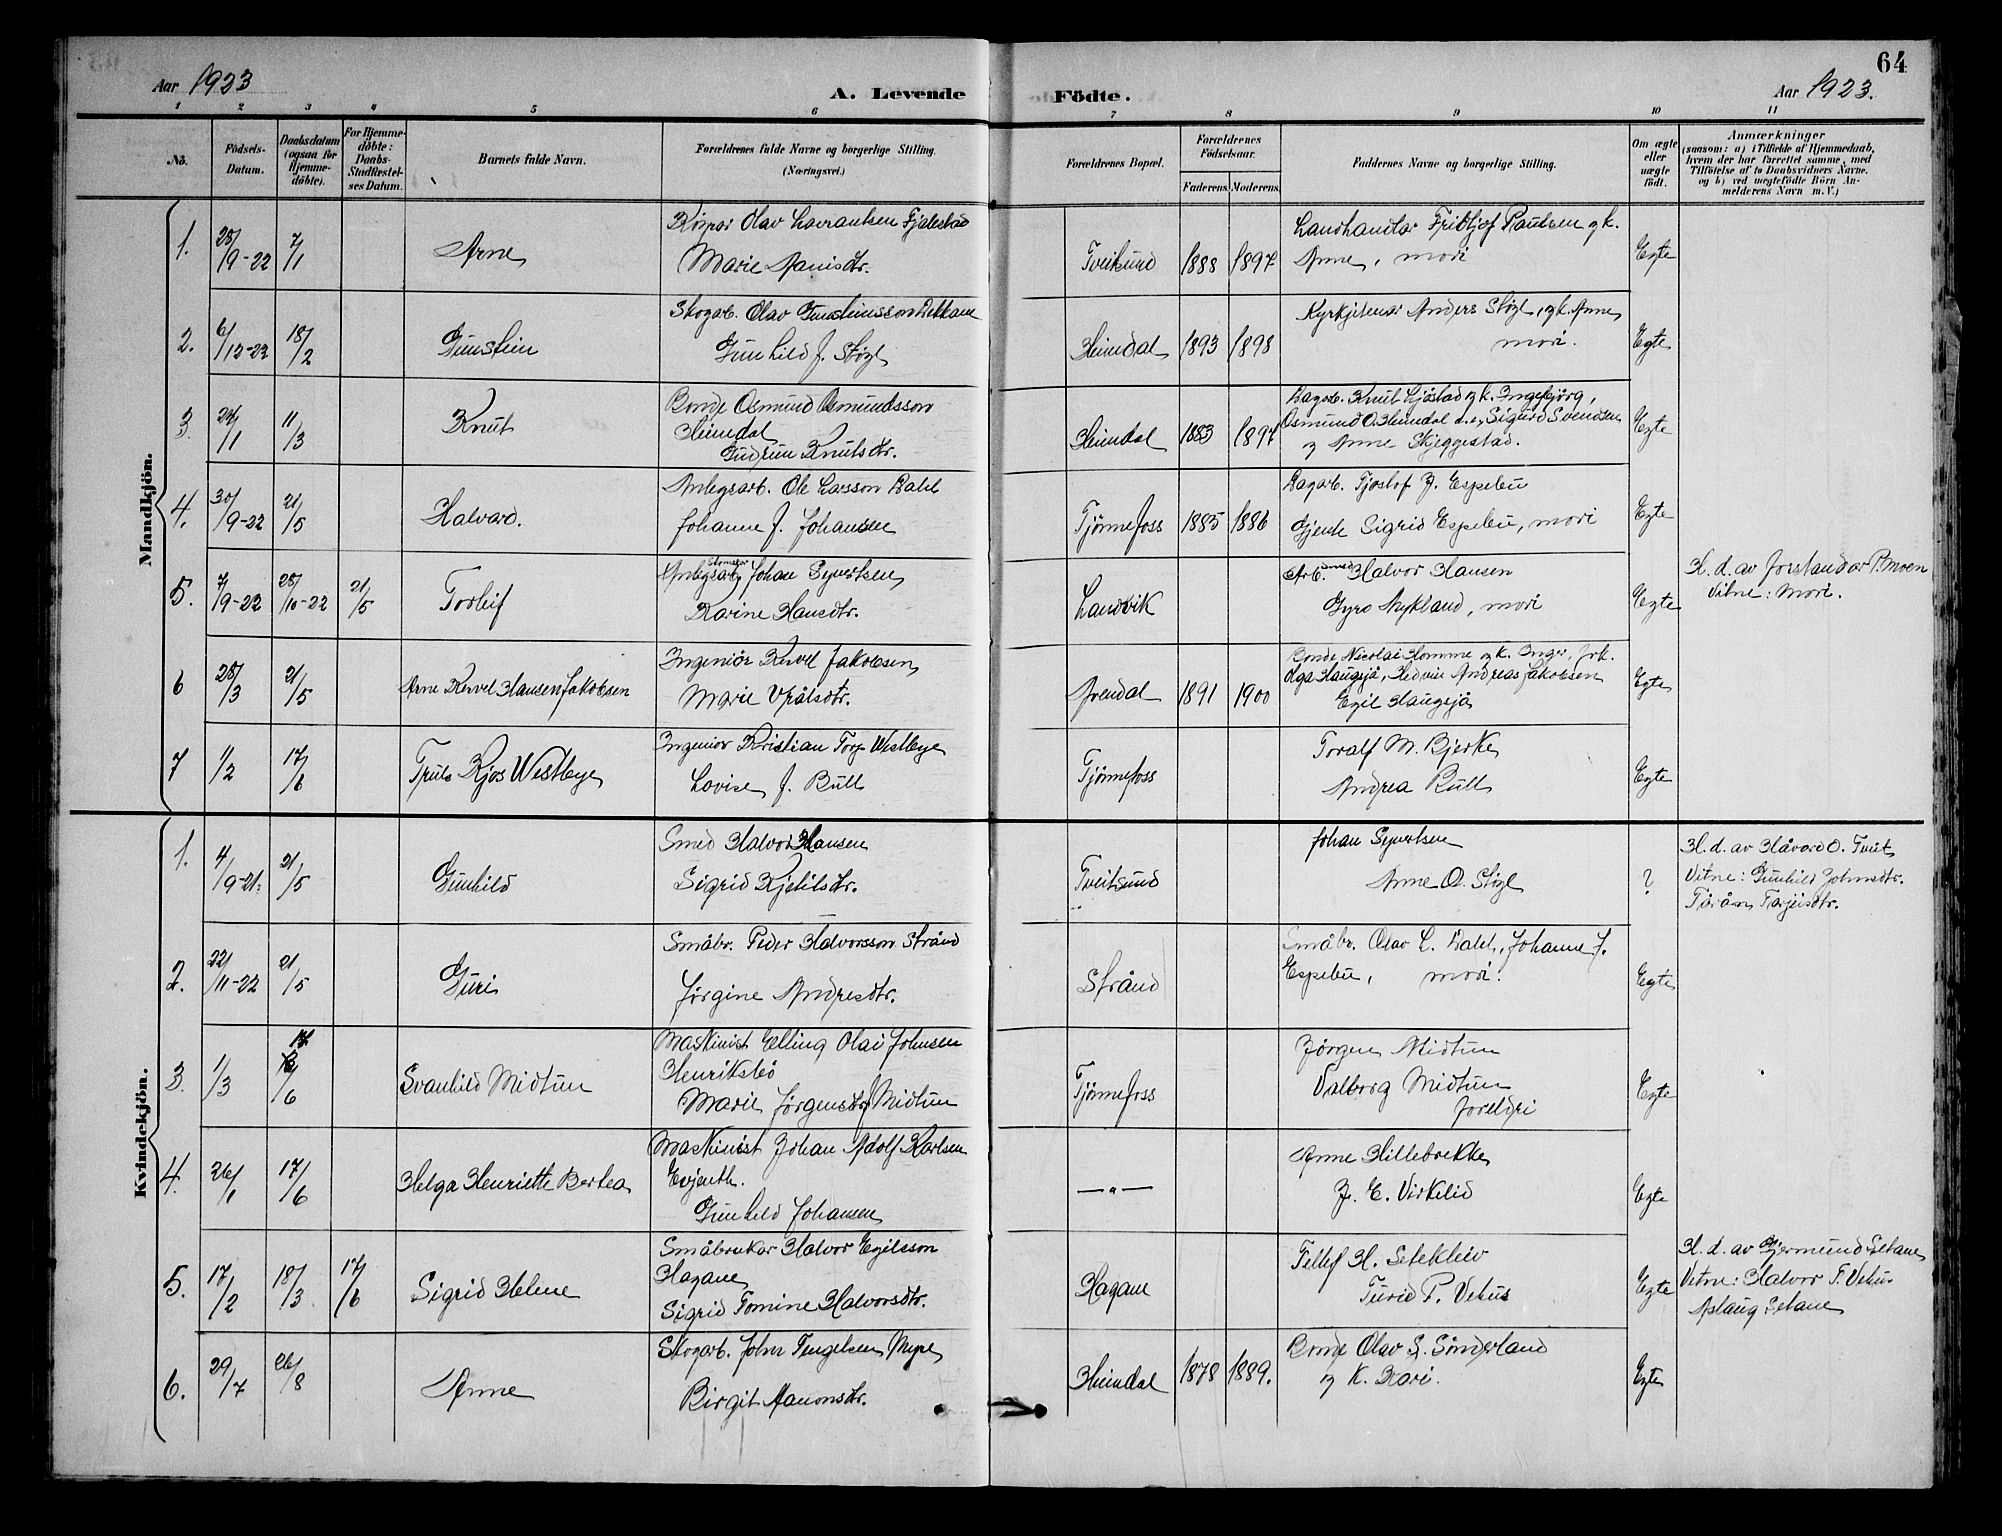 64
Aar 1923
A. Levende Födte.
Aar 1923.
1 2 3 4 5 6 7 8 9 10 11
No.
Födsels-Datum.
Daabsdatum (ogsaa for Hjemme-döbte).
For Hjemme-döbte: Daabs-Stadfæstel-ses Datum.
Barnets fulde Navn.
Forældrenes fulde Navne og borgerlige Stilling. (Næringsvei.)
Forældrenes Bopæl.
Forældrenes Födselsaar.
Faderens. Moderens.
Faddernes Navne og borgerlige Stilling.
Om ægte eller uægte födt.
Anmærkninger
(saasom: a) i Tilfælde af Hjemmedaab, hvem der har forrettet samme, med Tilföielse af to Daabsvidners Navne. og b) ved uægtefödte Börn Anmelderens Navn m. V.)
Mandkjön.
1. 28/9-22 7/1 Arne
Olav Lavrantsen Fjalestad
Marie Aanisdtr.
Tveitsund 1888 1897
Landhandlar Fridtjof Paulsen og k.
Anne, mori
Egte
2. 6/12-22 18/2 Gunstein
Skogarb. Olav Gunsteinsson
Gunhild J. Støyl
Heimdal 1893 1898
Kyrkjetenar Anders Støyl, og k. Anne
mori.
Egte
3. 24/1 11/3 Knut
Bonde Osmund Osmundsson
Heimdal
Gudrun Knutsdtr.
Heimdal 1883 1897
Dagarb. Knut Ljøstad og k. Ingebjörg,
Osmund O. Heimdal d.e., Sigurd Svendsen
og Anne Skjeggestad.
Egte
4. 30/9-22 21/5 Halvard.
Anlegsarb. Ole Larsson Dahl
Johanne J. Johansen
Tjönnefoss 1885 1886
Dagarb. Tjostof J. Espebu
Gjente Sigrid Espebu, mori
Egte
5. 7/9-22 28/10-22 21/5 Torleif
Anlegsarb. Johan Syvertsen
Karine Hansdtr.
Landvik
Arb. smed Halvor Hansen
Gyro Nykland, mori
Egte
H. d. av forstandar P. Moen
Vitne: Mori.
6 28/3 21/5 Arne Kervel Hansen Jakobsen
Ingeniör Kervel Jakobsen
Marie Vrålsdtr.
Arendal 1891 1900
Bonde Nicolai Homme og k. Inger, frk.
Olga Haugsjå, Hedvin Andreas Jakobsen
Egil Haugsjå
Egte
7 1/2 17/6 Truls Kjos Westbye
Ingeniör Kristian Torp Westbye
Lovise J. Bull
Tjönnefoss
Toralf M. Bjerke
Andrea Bull
Egte
Kvindekjön.
1. 4/9-21. 21/5 Gunhild
Smed Halvor Hansen
Sigrid Kjetilsdtr.
Tveitsund
Johan Syvertsen
Anne O. Støyl
?
H. d. av Håvard O. Tveit
Vitne: Gunhild Johnsdtr.
Tårån Tarjeisdtr.
2. 22/11-22 21/5 Guri
Småbr. Peder Halvorsson Strånd
Jørgine Andresdtr.
Strånd
Småbr. Olav L. Dahl, Johanne J.
Espebu, mori.
Egte
3. 1/3 17/6 Svanhild Midtun
Maskinist Elling Olai Johnsen
Henriksbö
Marie Jørgensdtr. Midtun
Tjönnefoss
Jörgen Midtun
Valborg Midtun
foreldri
Egte
4. 26/1 17/6 Helga Henriette Bertea
Maskinist Johan Adolf Karlsen
Evjenth.
Gunhild Johansen
— " —
Anne Hillebrekke
J. E. Virkelid
Egte
5. 17/2 18/3 17/6 Sigrid Helene
Småbrukar Halvor Egilsson
Hagane
Sigrid Tomine Halvorsdtr.
Hagane
Tellef H. Seleklev
Turid T. Vehus
Egte
H. d. av Gjermund Setane
Vitne: Halvor T. Vehus
Aslaug Setane
6. 29/7 26/8 Anne
Skogarb. John Tengelsen Myre
Birgit Aanonsdtr.
Heimdal 1878 1889.
Bonde Olav S. Sönderland
og K. Kari.
Egte